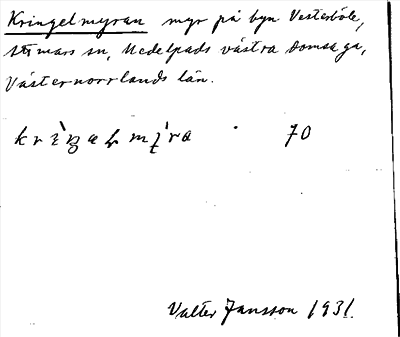 Kringelmyran myr på byn Vesterböle,
Attmars sn, Medelpads västra domsaga,
Västernorrlands län.
70
Valter Jansson 1931.